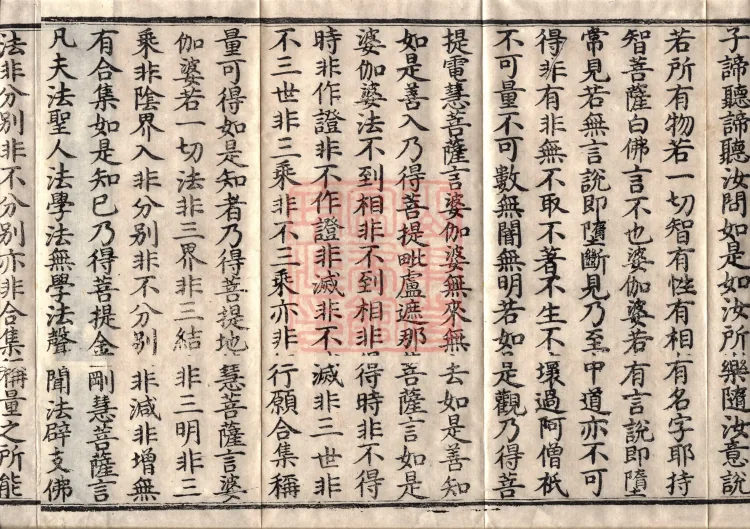 子諦聽諦聽汝問如是如汝所樂隨汝意說
若所有物若一切智有性有相有名字耶持
智菩薩白佛言不也婆伽婆若有言說即墮
常見若無言說即墮斷見乃至中道亦不可
得非有非無不取不著不生不壞過阿僧祇
不可量不可數無闇無明若如是觀乃得菩
提電慧菩薩言婆伽婆無來無去如是善知
如是善入乃得菩提毗盧遮那菩薩言如是
婆伽婆法不到相非不到相非得時非不得
時非作證非不作證非滅非不滅非三世非
不三世非三乘非不三乘亦非行願合集稱
量可得如是知者乃得菩提地慧菩薩言婆
伽婆若一切法非三界非三結非三明非三
乘非陰界入非分別非不分別非減非增無
有合集如是知已乃得菩提金剛慧菩薩言
凡夫法聖人法學法無學法聲聞法辟支佛
法非分別非不分別亦非合集稱量之所能